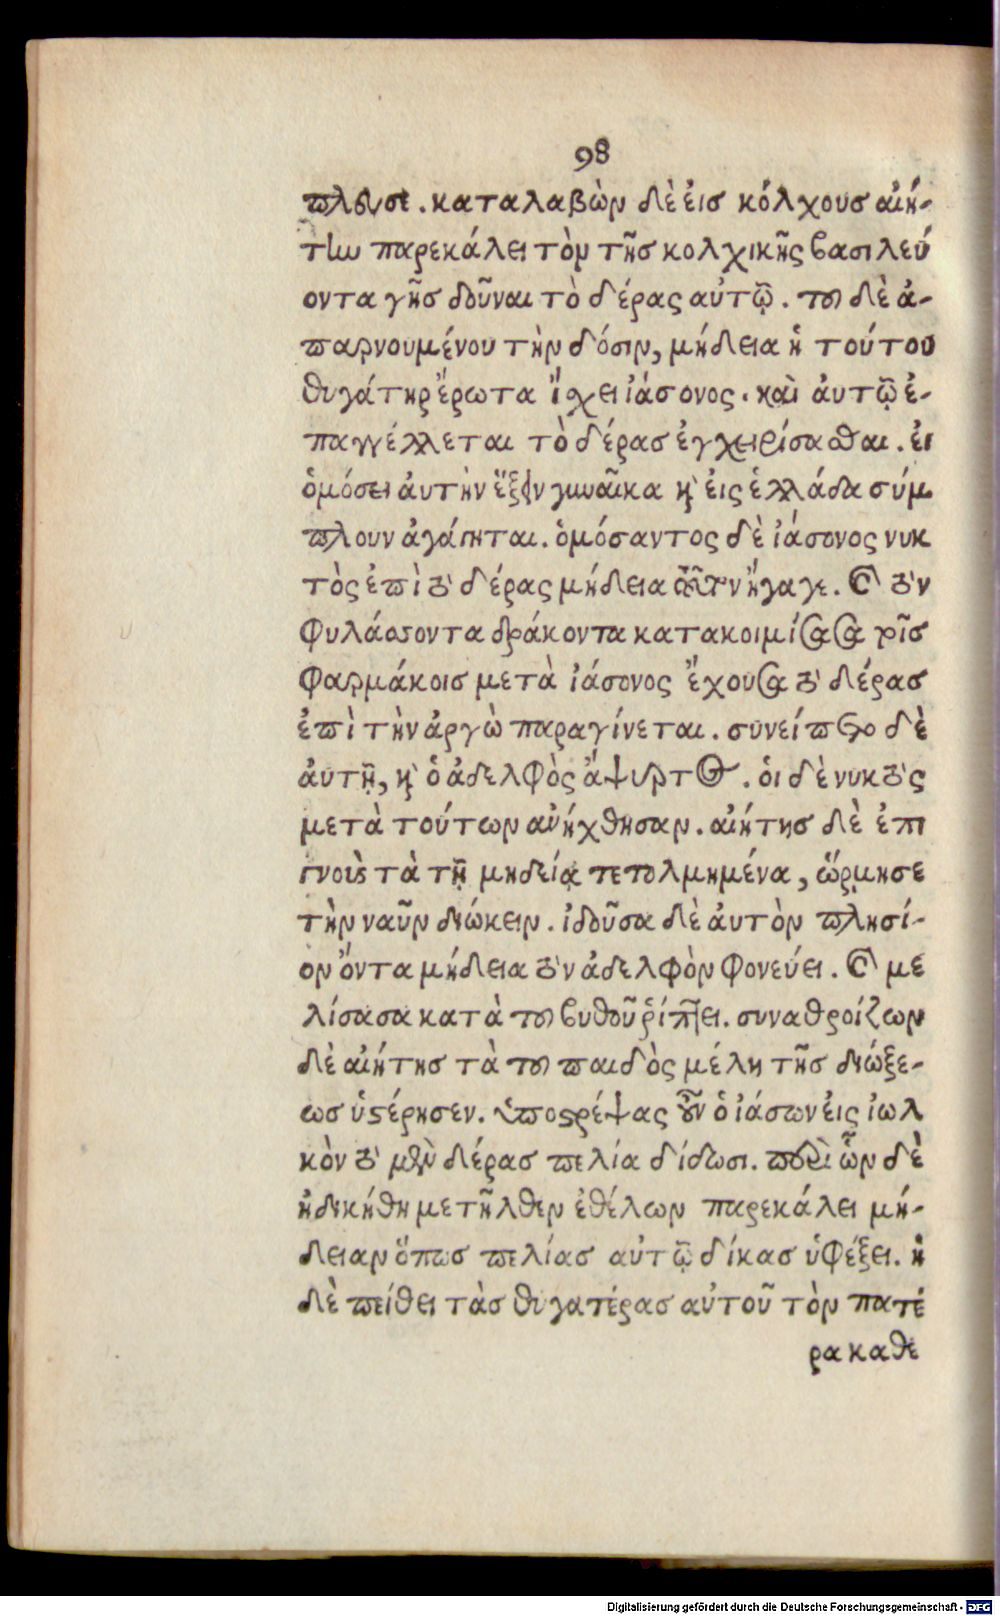 98
πλεῦσαι. καταλαβὼν δὲ εἰσ κόλχουσ αἰή-
την παρεκάλει τὸν τῆσ κολχικῆς βασιλεύ
οντα γῆσ δοῦναι τὸ δέρας αὐτῷ. τοῦ δὲ ἀ-
παρνουμένου τὴν δόσιν, μήδεια ἡ τούτου
θυγάτηρ ἔρωτα ἴχει ἰάσονος. καὶ ἀυτῷ ἐ-
παγγέλλεται τὸ δέρασ ἐγχειρίσασθαι. ἐι
ὁμόσει ἀυτὴν ἕξειν γυναῖκα κὶ ἐις ἑλλάδα σύμ
πλουν ἀγάγηται. ὁμόσαντος δὲ ἰάσονος νυκ
τὸς ἐπὶ τὸ δέρας μήδεια αὐτὸν ἤγαγε. καὶ τὸν
φυλάσσοντα δράκοντα κατακοιμίσασα τοῖσ
φαρμάκοισ μετὰ ἰάσονος ἔχουσα τὸ δέρασ
ἐπὶ τὴν ἀργὼ παραγίνεται. συνείπετο δὲ
ἀυτῇ, κὶ ὁ ἀδελφὸς ἄψυρτος. ὁι δὲ νυκτὸς
μετὰ τούτων ἀνήχθησαν. αἰήτησ δὲ ἐπι
γνοὺς τὰ τῇ μηδείᾳ τετολμημένα, ὥρμησε
τὴν ναῦν διώκειν. ἰδοῦσα δὲ ἀυτὸν πλησί-
ον ὄντα μήδεια τὸν ἀδελφὸν φονεύει. καὶ με
λίσασα κατὰ τοῦ βυθοῦ ῥίπτει. συναθροίζων
δὲ αἰήτησ τὰ τοῦ παιδὸς μέλη τῆσ διώξε-
ωσ ὑστέρησεν. ὑποστρέψας οὖν ὁ ἰάσων ἐις ἰωλ
κὸν τὸ μὲν δέρασ πελία δίδωσι. περὶ ὧν δὲ
ἠδικήθη μετῆλθεν ἐθέλων παρεκάλει μή-
δειαν ὅπωσ πελίασ αὐτῷ δίκασ ὑφέξει. ἡ
δὲ πείθει τὰσ θυγατέρασ αὐτοῦ τὸν πατέ
ρα καθε
Digitalisierung gefördert durch die Deutsche Forschungsgemeinschaft - DFG